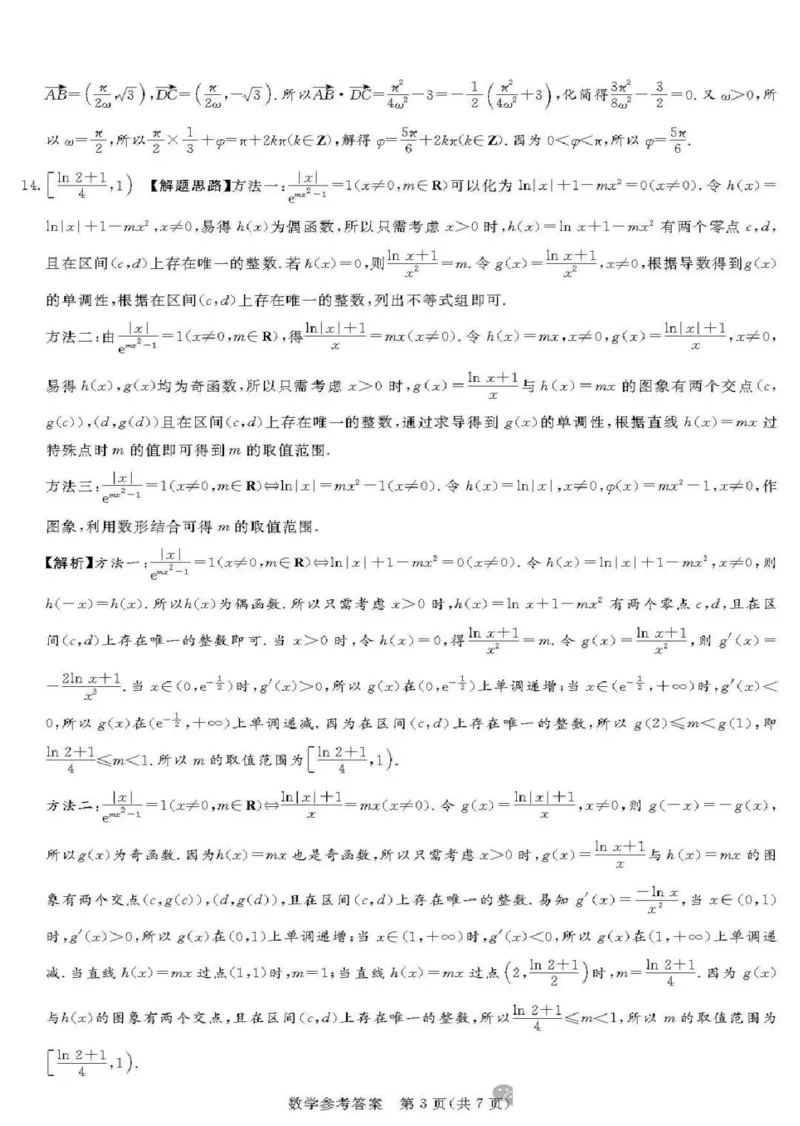 $\overrightarrow{AB}=\left(\frac{\pi}{2\omega},\sqrt{3}\right),\overrightarrow{DC}=\left(\frac{\pi}{2\omega},-\sqrt{3}\right)$.所以$\overrightarrow{AB}\cdot\overrightarrow{DC}=\frac{\pi^2}{4\omega^2}-3=-\frac{1}{2}\left(\frac{\pi^2}{4\omega^2}+3\right)$,化简得$\frac{3\pi^2}{8\omega^2}-\frac{3}{2}=0$.又 $\omega>0$,所
以 $\omega=\frac{\pi}{2}$,所以$\frac{\pi}{2}\times\frac{1}{3}+\varphi=\pi+2k\pi(k\in\mathbf{Z})$,解得 $\varphi=\frac{5\pi}{6}+2k\pi(k\in\mathbf{Z})$.因为 $0<\varphi<\pi$,所以 $\varphi=\frac{5\pi}{6}$.
14.$\left[\frac{\ln 2+1}{4},1\right)$ 【解题思路】方法一:$\frac{|x|}{e^{mx^2-1}}=1(x\neq0,m\in\mathbf{R})$可以化为 $\ln|x|+1-mx^2=0(x\neq0)$.令 $h(x)=$
$\ln|x|+1-mx^2,x\neq0$,易得 $h(x)$为偶函数,所以只需考虑 $x>0$ 时,$h(x)=\ln x+1-mx^2$ 有两个零点 $c,d$,
且在区间$(c,d)$上存在唯一的整数.若$h(x)=0$,则$\frac{\ln x+1}{x^2}=m$.令 $g(x)=\frac{\ln x+1}{x^2},x\neq0$,根据导数得到$g(x)$
的单调性,根据在区间$(c,d)$上存在唯一的整数,列出不等式组即可.
方法二:由$\frac{|x|}{e^{mx^2-1}}=1(x\neq0,m\in\mathbf{R})$,得$\frac{\ln|x|+1}{x}=mx(x\neq0)$.令 $h(x)=mx,x\neq0,g(x)=\frac{\ln|x|+1}{x},x\neq0$,
易得 $h(x),g(x)$均为奇函数,所以只需考虑 $x>0$ 时,$g(x)=\frac{\ln x+1}{x}$与 $h(x)=mx$ 的图象有两个交点$(c,$
$g(c)),(d,g(d))$且在区间$(c,d)$上存在唯一的整数,通过求导得到 $g(x)$的单调性,根据直线 $h(x)=mx$ 过
特殊点时 $m$ 的值即可得到 $m$ 的取值范围.
方法三:$\frac{|x|}{e^{mx^2-1}}=1(x\neq0,m\in\mathbf{R})\Leftrightarrow\ln|x|=mx^2-1(x\neq0)$.令 $h(x)=\ln|x|,x\neq0,\varphi(x)=mx^2-1,x\neq0$,作
图象,利用数形结合可得 $m$ 的取值范围.
【解析】方法一:$\frac{|x|}{e^{mx^2-1}}=1(x\neq0,m\in\mathbf{R})\Leftrightarrow\ln|x|+1-mx^2=0(x\neq0)$.令 $h(x)=\ln|x|+1-mx^2,x\neq0$,则
$h(-x)=h(x)$.所以$h(x)$为偶函数.所以只需考虑 $x>0$ 时,$h(x)=\ln x+1-mx^2$ 有两个零点 $c,d$,且在区
间$(c,d)$上存在唯一的整数即可.当 $x>0$ 时,令 $h(x)=0$,得$\frac{\ln x+1}{x^2}=m$.令 $g(x)=\frac{\ln x+1}{x^2}$,则 $g'(x)=$
$-\frac{2\ln x+1}{x^3}$.当 $x\in(0,e^{-\frac{1}{2}})$时,$g'(x)>0$,所以 $g(x)$在$(0,e^{-\frac{1}{2}})$上单调递增;当 $x\in(e^{-\frac{1}{2}},+\infty)$时,$g'(x)<$
0,所以 $g(x)$在$(e^{-\frac{1}{2}},+\infty)$上单调递减.因为在区间$(c,d)$上存在唯一的整数,所以 $g(2)\leqslant m<g(1)$,即
$\frac{\ln 2+1}{4}\leqslant m<1$.所以 $m$ 的取值范围为$\left[\frac{\ln 2+1}{4},1\right)$.
方法二:$\frac{|x|}{e^{mx^2-1}}=1(x\neq0,m\in\mathbf{R})\Leftrightarrow\frac{\ln|x|+1}{x}=mx(x\neq0)$.令 $g(x)=\frac{\ln|x|+1}{x},x\neq0$,则 $g(-x)=-g(x)$,
所以$g(x)$为奇函数.因为$h(x)=mx$ 也是奇函数,所以只需考虑 $x>0$ 时,$g(x)=\frac{\ln x+1}{x}$与 $h(x)=mx$ 的图
象有两个交点$(c,g(c)),(d,g(d))$,且在区间$(c,d)$上存在唯一的整数.易知 $g'(x)=\frac{-\ln x}{x^2}$,当 $x\in(0,1)$
时,$g'(x)>0$,所以 $g(x)$在$(0,1)$上单调递增;当 $x\in(1,+\infty)$时,$g'(x)<0$,所以 $g(x)$在$(1,+\infty)$上单调递
减.当直线 $h(x)=mx$ 过点$(1,1)$时,$m=1$;当直线 $h(x)=mx$ 过点$\left(2,\frac{\ln 2+1}{2}\right)$时,$m=\frac{\ln 2+1}{4}$.因为 $g(x)$
与$h(x)$的图象有两个交点,且在区间$(c,d)$上存在唯一的整数,所以$\frac{\ln 2+1}{4}\leqslant m<1$,所以 $m$ 的取值范围为
$\left[\frac{\ln 2+1}{4},1\right)$.
数学参考答案 第 3 页(共 7 页)